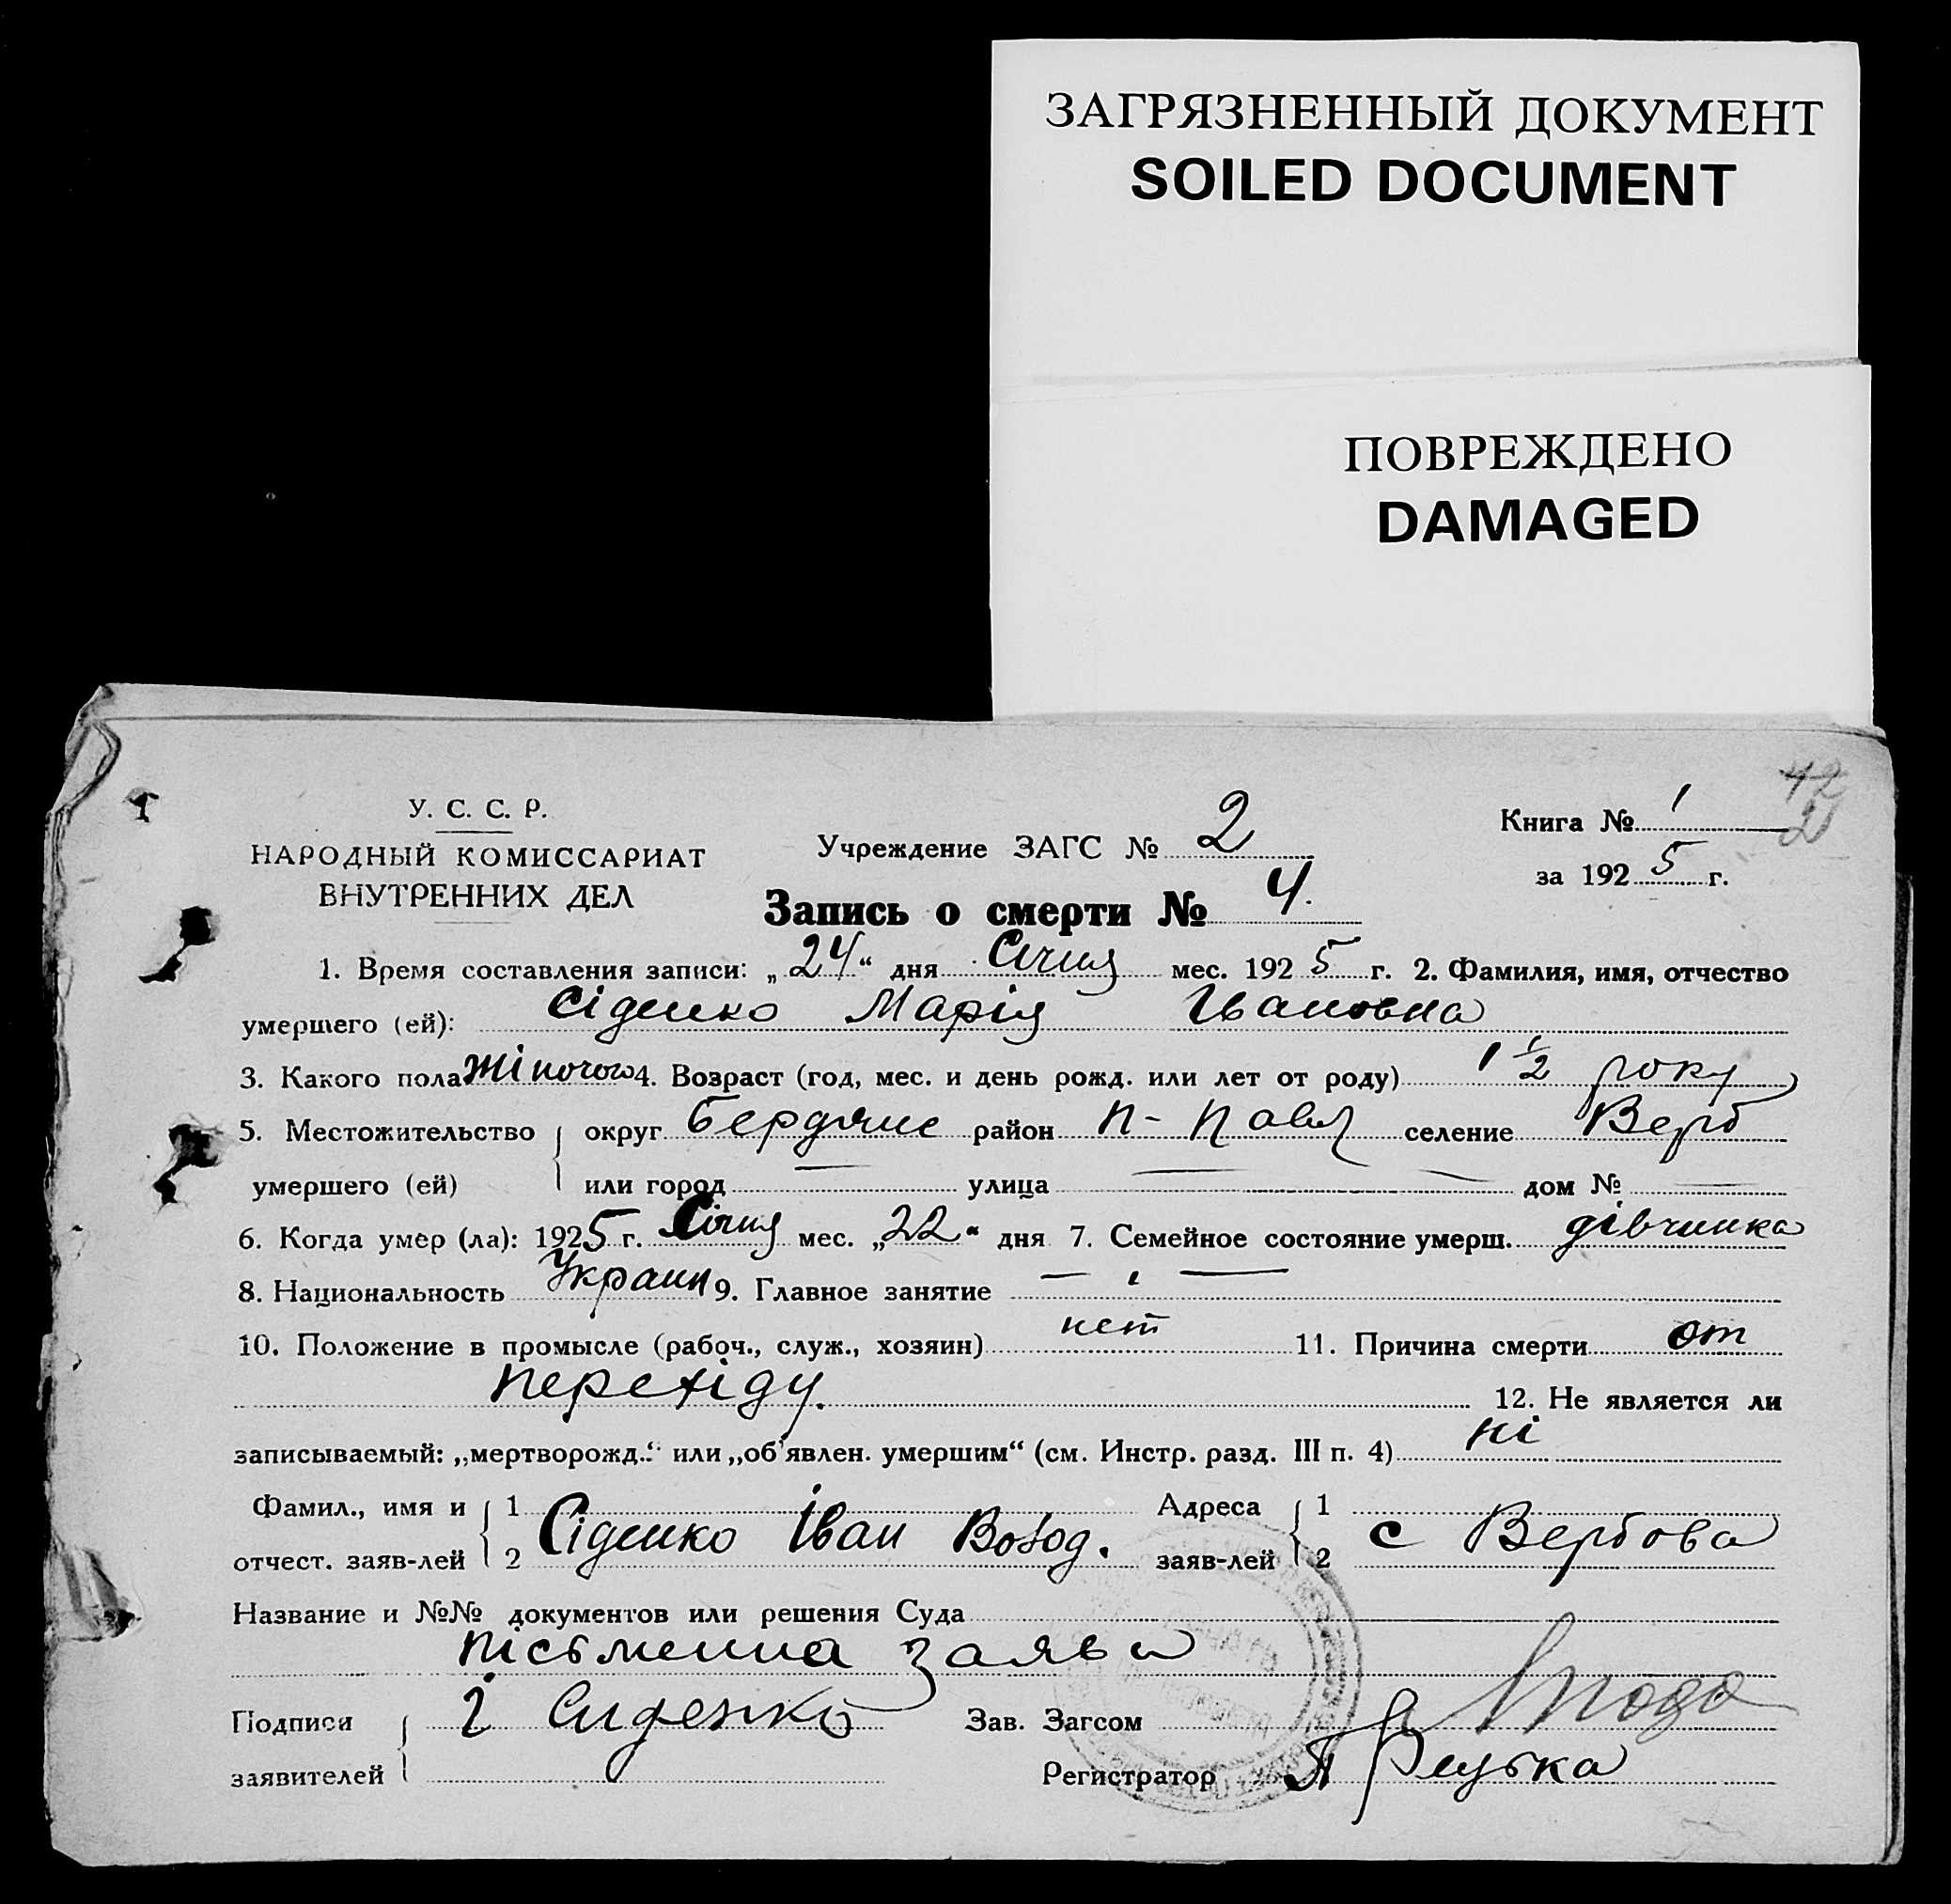 ЗАГРЯЗНЕННЫЙ ДОКУМЕНТ
SOILED DOCUMENT
ПОВРЕЖДЕНО
DAMAGED
42
У. С. С. Р.
НАРОДНЫЙ КОМИССАРИАТ
ВНУТРЕННИХ ДЕЛ
Учреждение ЗАГС № 2
Книга № 1
за 1925 г.
Запись о смерти № 4.
1. Время составления записи: „24“ дня Січня мес. 1925 г. 2. Фамилия, имя, отчество
умершего (ей): Сіденко Марія Івановна
3. Какого пола жіночого 4. Возраст (год, мес. и день рожд. или лет от роду) 1 1/2 року
5. Местожительство округ Бердянс район П-Павл селение Верб
умершего (ей) или город — улица — дом № —
6. Когда умер (ла): 1925 г. Січня мес. „22“ дня 7. Семейное состояние умерш. дівчинка
8. Национальность Украин 9. Главное занятие —
10. Положение в промысле (рабоч., служ., хозяин) нет 11. Причина смерти от
перехіду. 12. Не является ли
записываемый: „мертворожд.“ или „об'явлен. умершим“ (см. Инстр. разд. III п. 4) ні
Фамил., имя и 1 Адреса 1
отчест. заяв-лей 2 Сіденко Іван заяв-лей 2 с Вербова
Название и №№ документов или решения Суда
письменна заява
Подписи І Сиденко Зав. Загсом
заявителей Регистратор